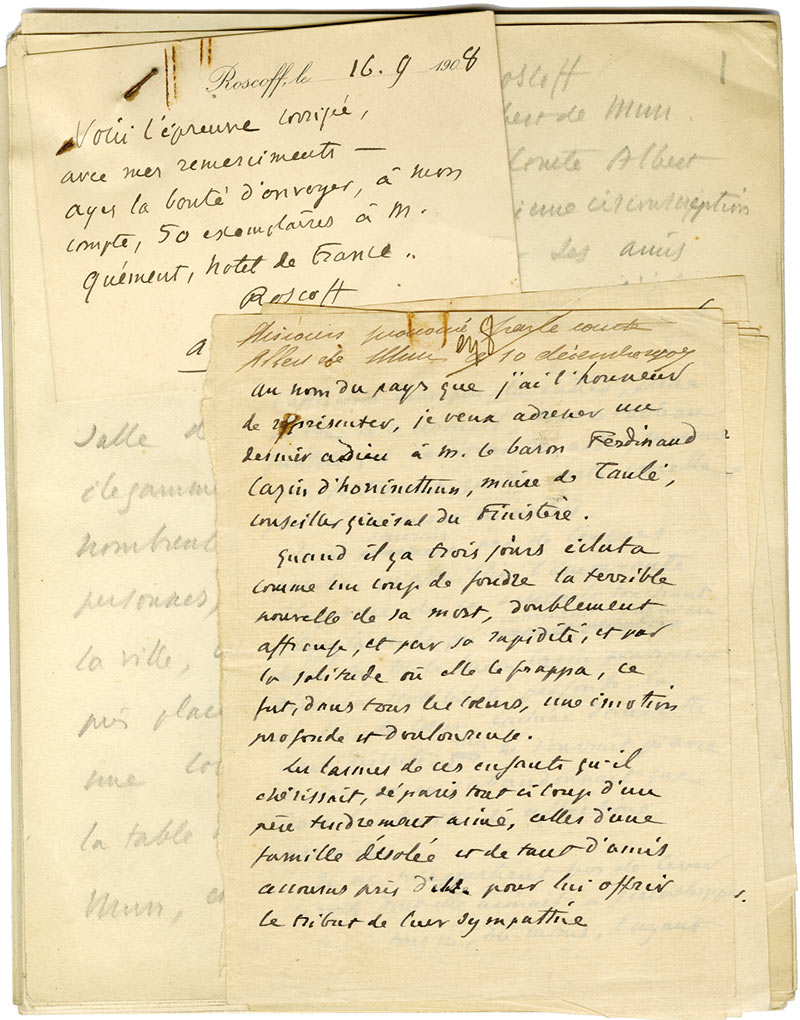 Roscoff, le 16. 9 1908
Voici l'épreuve corrigée,
avec mes remerciments —
ayez la bonté d'envoyer, à mon
compte, 50 exemplaires à M.
Quément, hotel de France..
Roscoff
a
1
oscoff
bert de Mun.
Comte Albert
une circonscription
Les amis
Discours prononcé par le comte
Albert de Mun le 10 décembre
Au nom du pays que j'ai l'honneur
de représenter, je veux adresser un
dernier adieu à M. le baron Ferdinand
Cazin d'honincthun, maire de Taulé,
conseiller général du Finistère.
Quand il y a trois jours éclata
comme un coup de foudre la terrible
nouvelle de sa mort, doublement
affreuse, et par sa rapidité, et par
la solitude où elle le frappa, ce
fut, dans tous les cœurs, une émotion
profonde et douloureuse.
Les larmes de ces enfants qu'il
chérissait, séparés tout à coup d'un
père tendrement aimé, celles d'une
famille désolée et de tant d'amis
accourus près d'elle pour lui offrir
le tribut de leur sympathie
Salle d
élégamme
nombreu
personnes,
la ville,
près plac
une
la table
Mun,